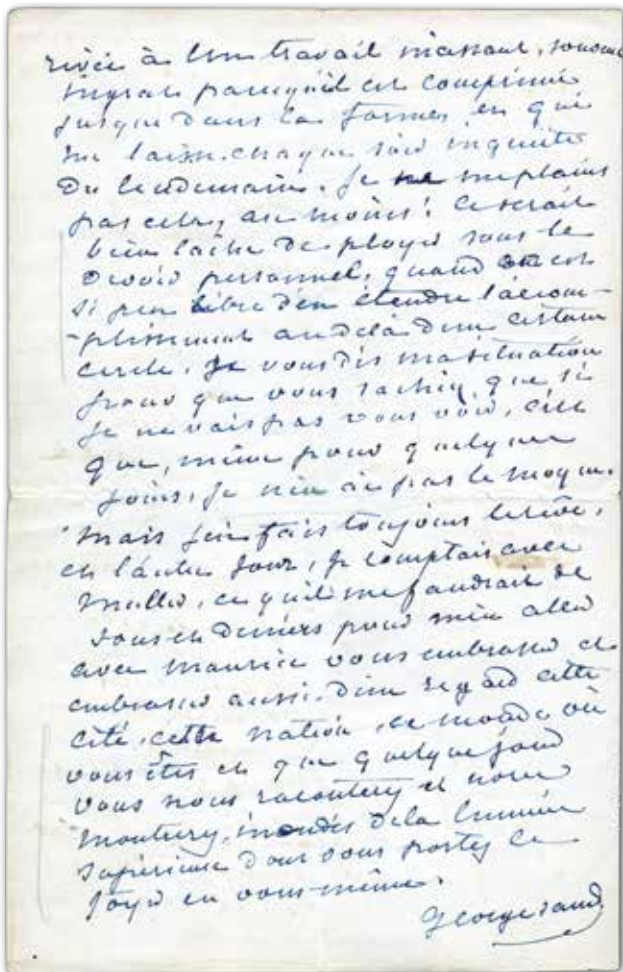 rivée à un travail incessant, souvent
ingrat parcequ'il est comprimé
jusque dans la forme, et qui
me laisse chaque soir inquiète
du lendemain. Je ne me plains
pas cela, au moins! ce serait
bien lâche de ployer sous le
devoir personnel, quand on est
si peu libre d'en étendre l'accom-
-plissement au delà d'un certain
cercle. Je vous dis ma situation
pour que vous sachiez, que si
je ne vais pas vous voir, c'est
que, même pour quelques
jours, je n'en ai pas le moyen.
Mais j'en fais toujours le rêve,
et l'autre jour, je comptais avec
ce qu'il me faudrait de
sous et deniers pour m'en aller
avec Maurice vous embrasser et
embrasser aussi d'un regard cette
cité, cette nation, ce monde où
vous êtes et que quelque jour
vous nous raconterez et nous
montrerez, inondés de la lumière
supérieure dont vous portez le
foyer en vous-même.
George Sand